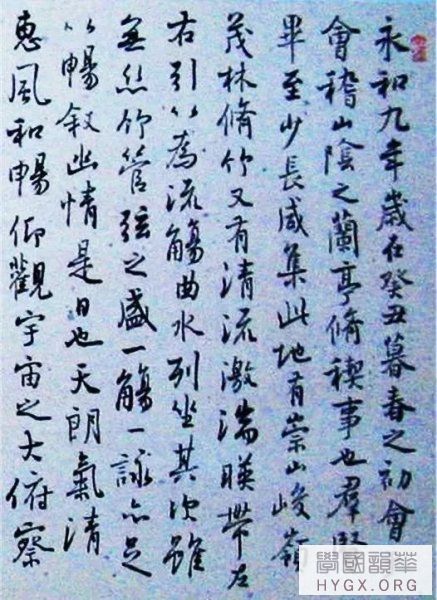 永和九年歲在癸丑暮春之初會
會稽山陰之蘭亭脩禊事也羣賢
畢至少長咸集此地有崇山峻嶺
茂林脩竹又有清流激湍暎帶左
右引以為流觴曲水列坐其次雖
無絲竹管弦之盛一觴一詠亦足
以暢敘幽情是日也天朗氣清
惠風和暢仰觀宇宙之大俯察
華韻國學
HYGX.ORG